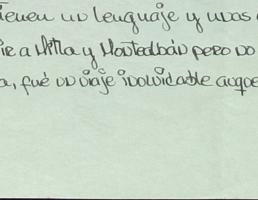 Tienen un lenguaje y unos
ir a Mitla y Montealbán pero no
a, fué un viaje inolvidable aunque